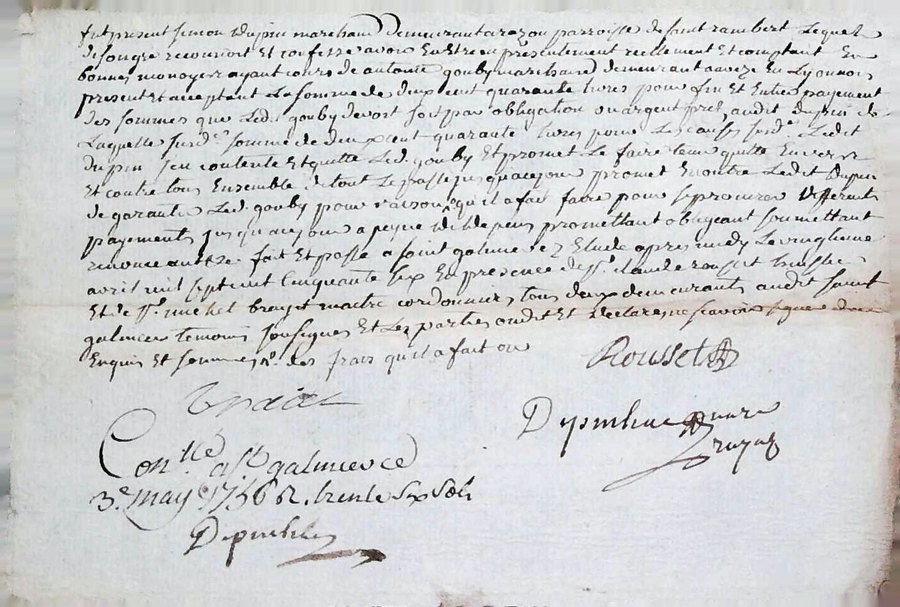 fut present simon dupin marchand demeurant a razon parroisse de saint rambert Lequel
de son gre reconnoit Et confesse avoir Eu Et receu presentement reellement Et comptant En
bonnes monoyes ayant cours de antoine gouby marchand demeurant a aveze En Lyonnois
present Et acceptant La somme de deux cent quarante livres pour fin Et Entier payement
des sommes que Led. gouby devoit soit par obligation ou argent audit dupin de
Laquelle susd. somme de deux cent quarante livres pour Les causes susd. Ledit
dupin s'en contente Et quitte Led. gouby Et promet Le faire tenir quitte Envers
Et contre tous Ensemble de tout Le passé jusqu'a ce jour promet En outre Ledit dupin
de garantir Led. gouby pour raison qu'il a fait faire pour se procurer differents
payements jusqu'a ce jour a peyne promettant obligeant soumettant
renonceant &e fait Et passé a saint galmier Etude apres midy Le vingtieme
avril mil sept cent cinquante six En presence de sr. claude rousset huissier
Et de sr. michel bruyet maitre cordonnier tous deux demeurants audit saint
galmier temoins sousignes Et Les parties ont dit Et declaré ne scavoir signer de ce
Enquis Et sommés des frais qu'il a fait ou
Rousset
Depinhac nore
Bruyas
Con.lle a st galmier ce
3e may 1756 R. trente six sols
Depinhac